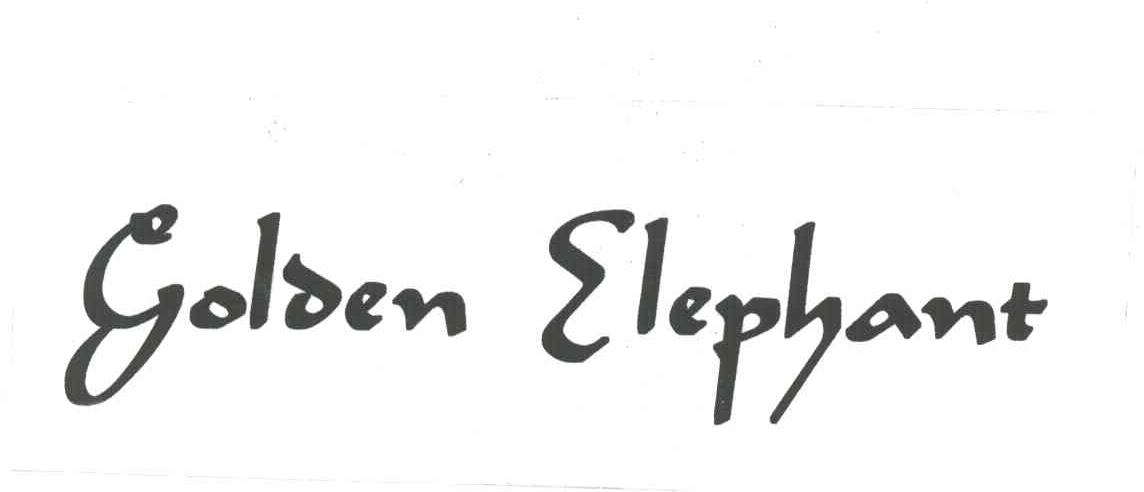 Golden Elephant